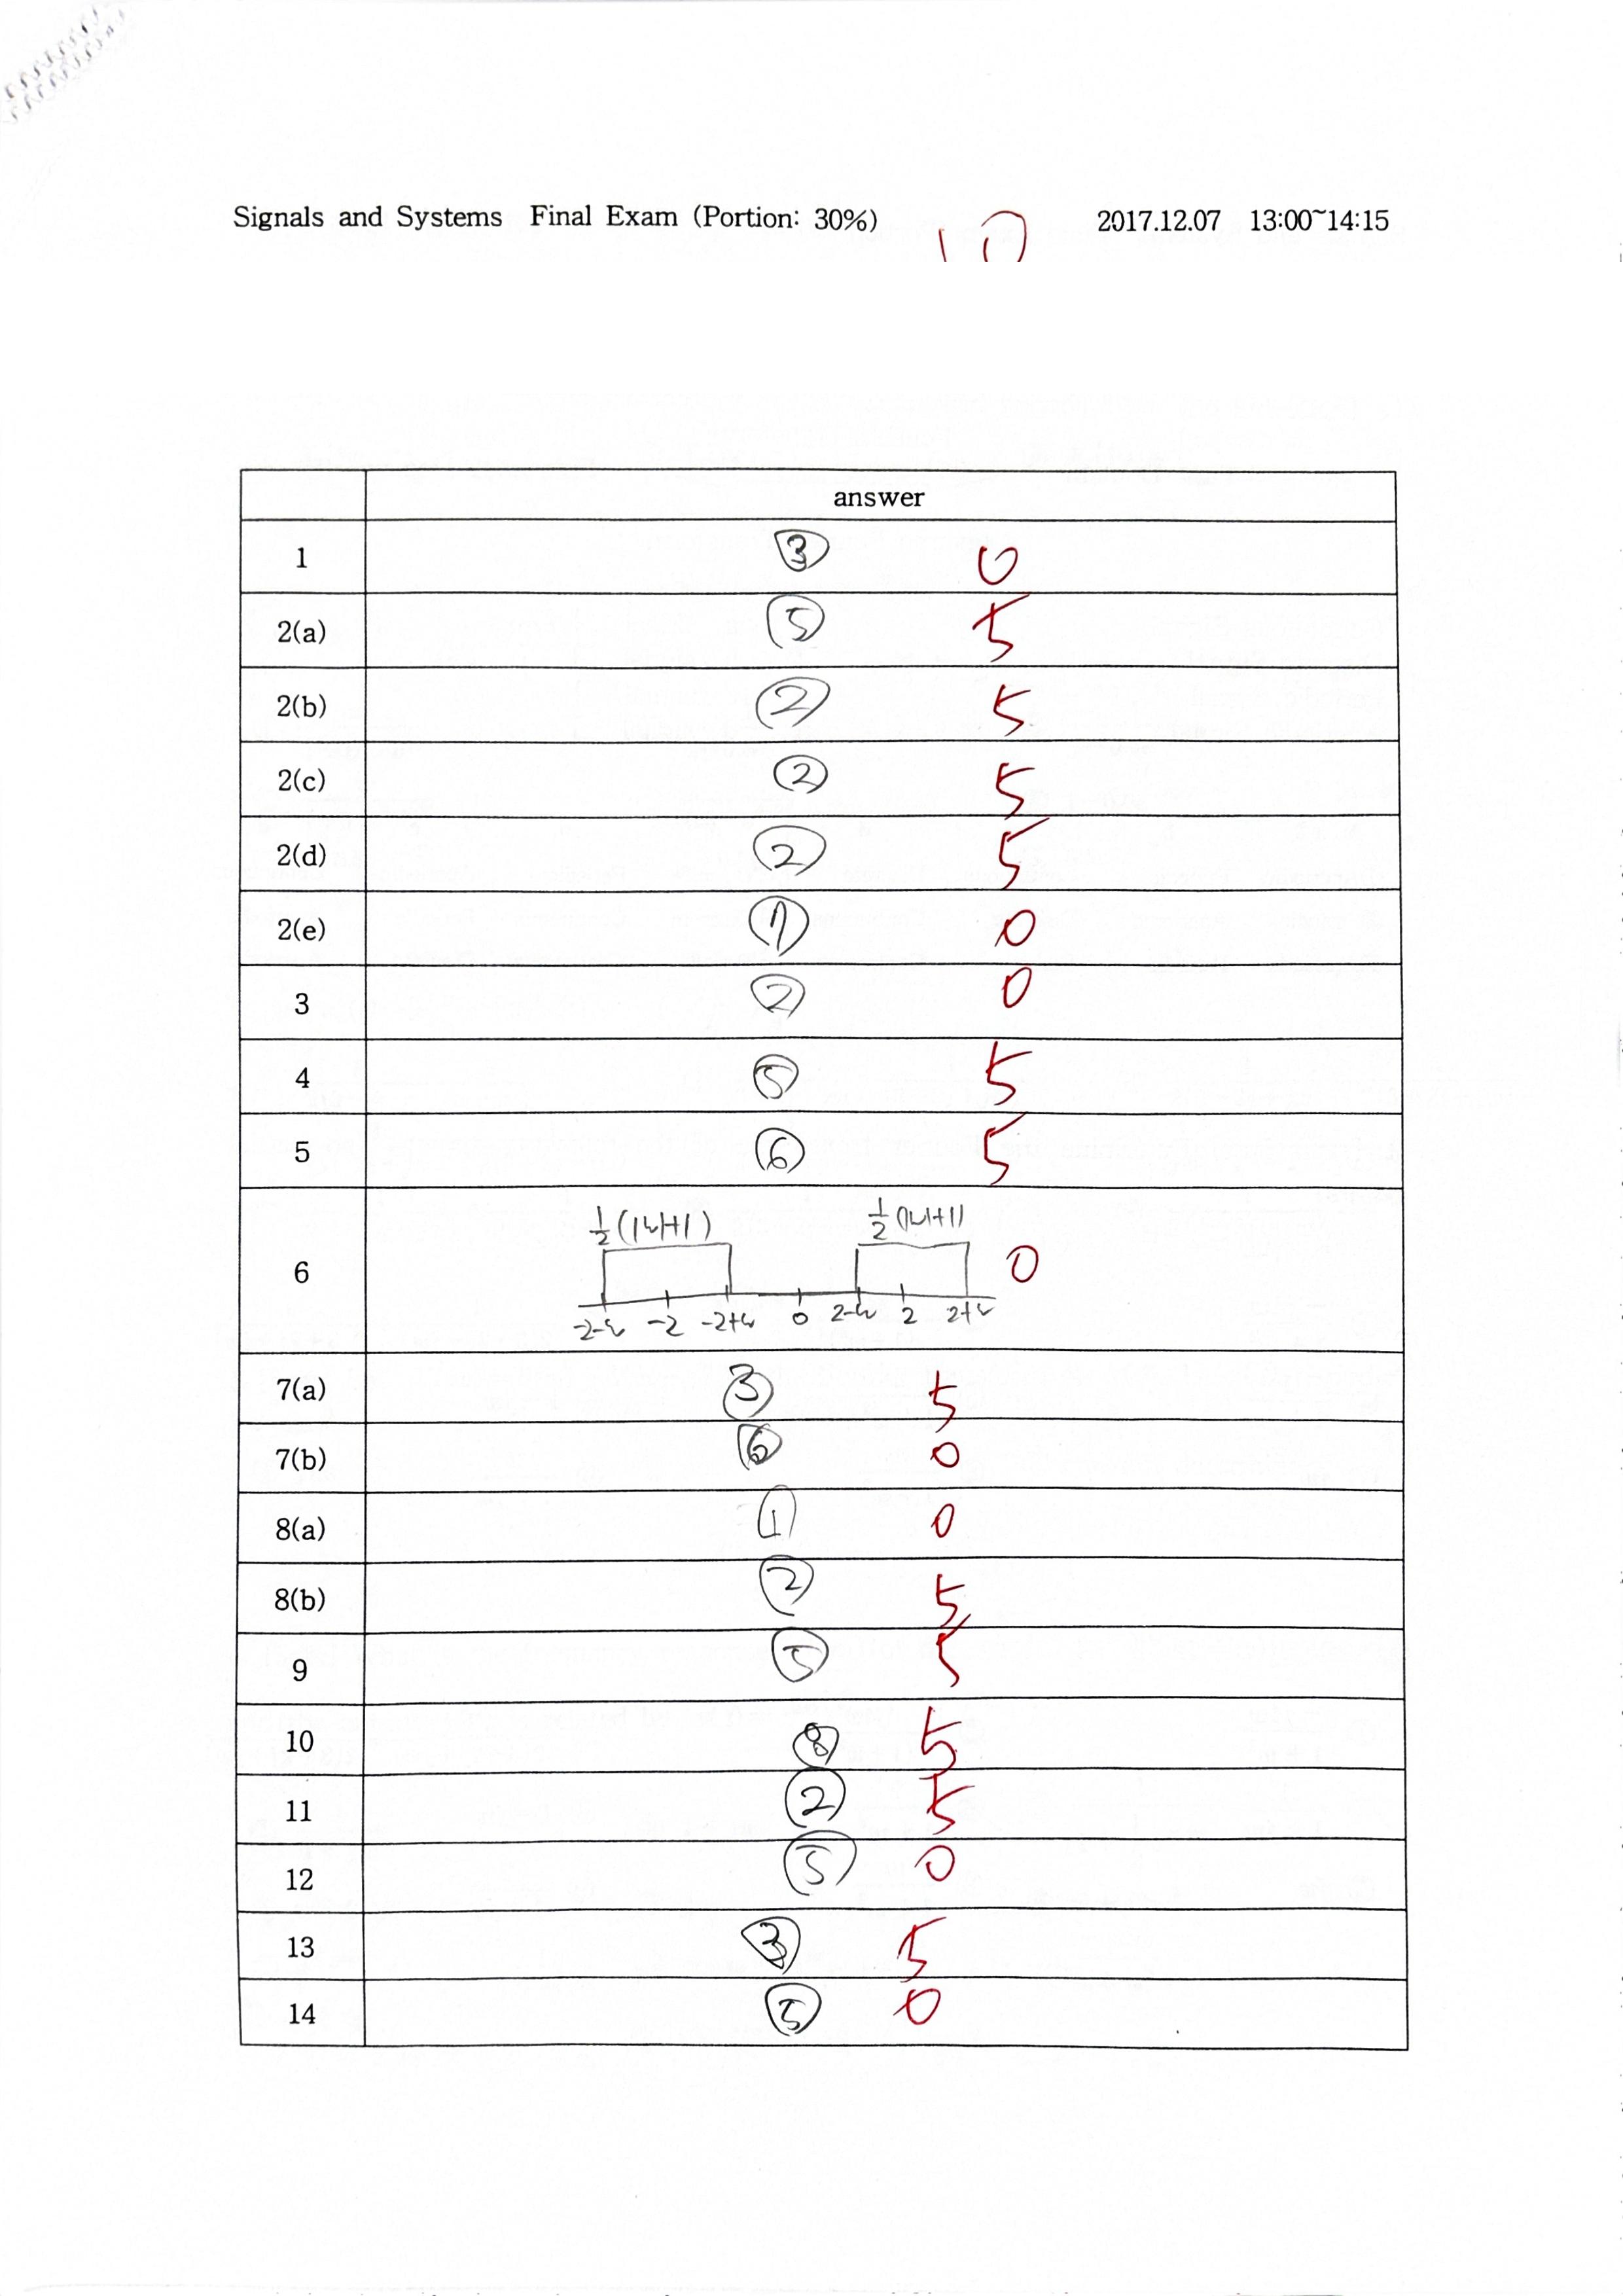 Signals and Systems Final Exam (Portion: 30%) 2017.12.07 13:00~14:15
answer
1 ③ 0
2(a) ⑤ 5
2(b) ② 5
2(c) ② 5
2(d) ② 5
2(e) ① 0
3 ② 0
4 ⑤ 5
5 ⑥ 5
½(|ω|+1) ½(|ω|+1)
6 0
-2-ω -2 -2+ω 0 2-ω 2 2+ω
7(a) ③ 5
7(b) ⑥ 0
8(a) ① 0
8(b) ② 5
9 ⑤ 5
10 ⑧ 5
11 ② 5
12 ⑤ 0
13 ③ 5
14 ⑤ 0